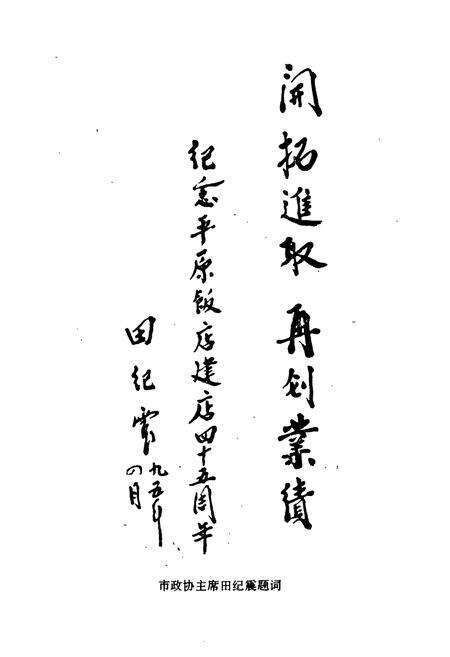 開拓進取 再创業績
纪念平原饭店建店四十五周年
田纪震 九五年
四月
市政协主席田纪震题词